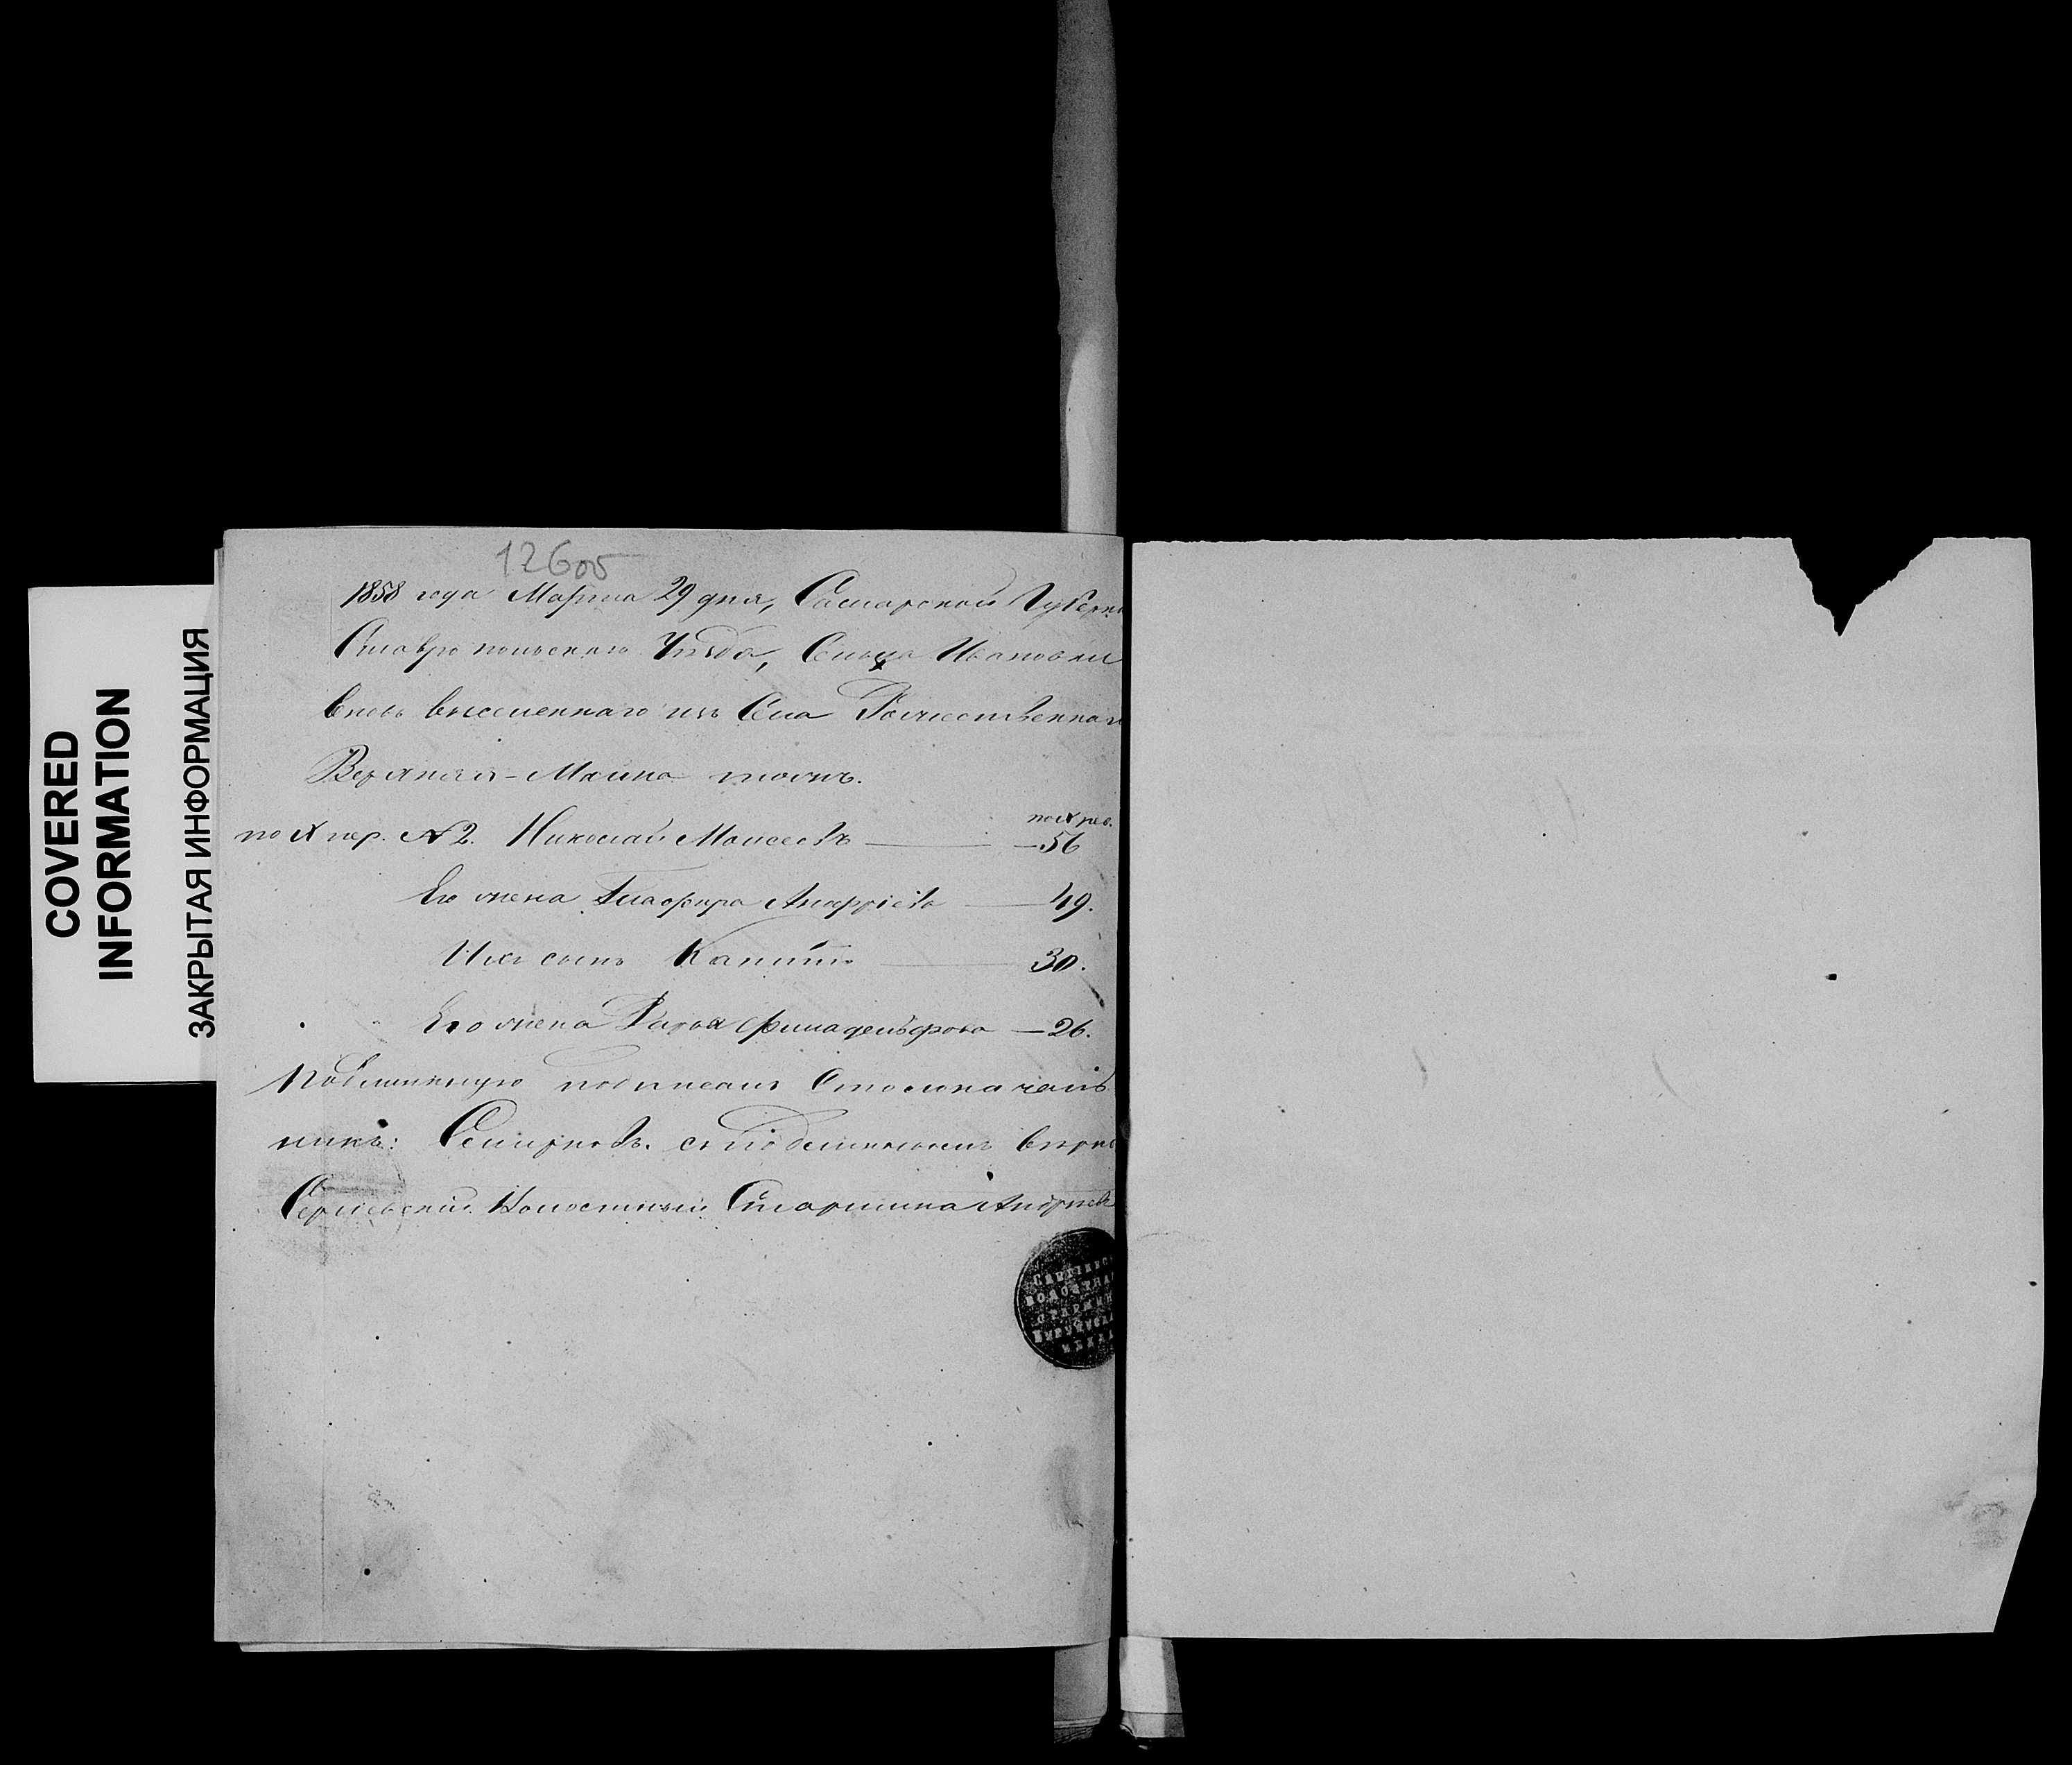 COVERED
INFORMATION
ЗАКРЫТАЯ ИНФОРМАЦИЯ
126об
1858 года Марта 29 дня, Самарской Губерн
Ставропольскаго Уѣзда, Сельца Ивановки
вновь выселеннаго изъ Села Рожественнаго
Верхняя-Маина тожъ.
по X рев.
по X пер. № 2. Николай Моисеевъ — 56
Его жена Глафира Андреева — 49.
Ихъ сынъ Капитонъ — 30.
Его жена Дарья Филадельфова — 26.
Подлинную подписалъ Столоначаль
никъ: Смирновъ. съ подлиннымъ вѣрно
Сергіевскій Волостный Старшина Андреевъ
ВОЛОСТНА
СТАРШИН